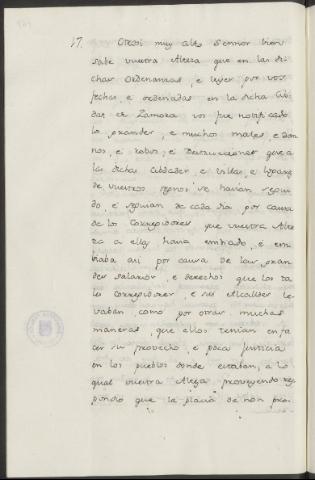 47. Otrosi muy alto Sennor bien
sabe vuestra Alteza que en las di-
chas Ordenanzas, e leyes por vos
fechas, e ordenadas en la dicha Cib-
dat de Zamora vos fue notificado
lo grandes, e muchos males, e dan-
nos, e robos, e destrucciones que a
las dichas Cibdades, e villas, e logares
de vuestros regnos se havian segui-
do e seguian de cada dia por causa
de los Corregidores que vuestra Alte-
za a ellas havia embiado, e em-
biaba asi por causa de los gran-
des salarios, e derechos que los ta-
les Corregidores, e sus Alcalldes le-
vaban, como por otras muchas
maneras, que ellos tenian en fa-
cer su provecho, e poca justicia
en los pueblos donde estaban, a lo
qual vuestra Alteza proveyendo res-
pondio que la placia de non pro-